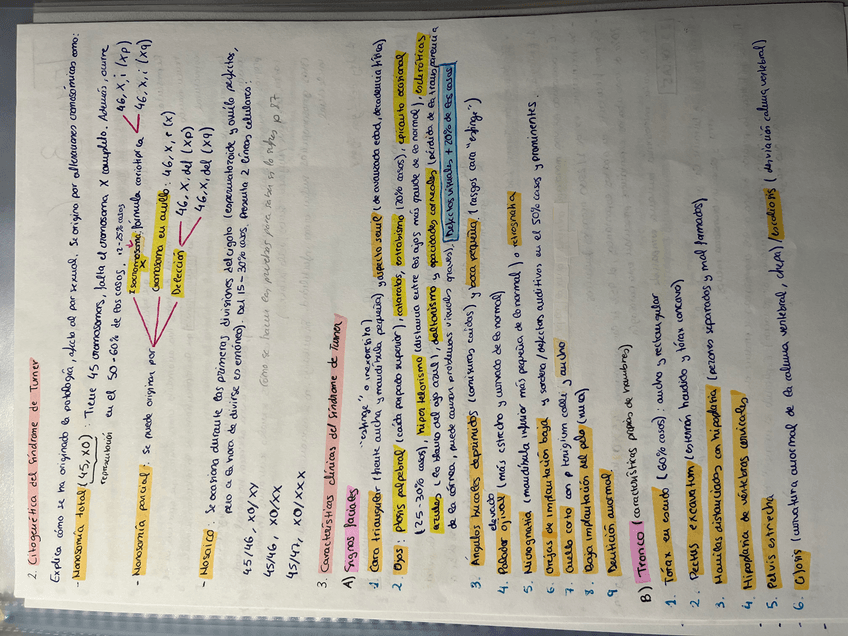 2. Citogenética del Síndrome de Turner
Explica cómo se ha originado la patología, afecta al par sexual. Se origina por alteraciones cromosómicas como:
- Monosomía total (45, X0) : Tiene 45 cromosomas, falta el cromosoma X completo. Además, ocurre
representación en el 50-60% de los casos.
12-25% casos
- Monosomía parcial : se puede originar por
Isocromosoma X, fórmula cariotípica
46, X, i (Xp)
46, X, i (Xq)
Cromosoma en anillo : 46, X, r (X)
Delección
46, X, del (Xp)
46, X, del (Xq)
- Mosaico : Se ocasiona durante las primeras divisiones del cigoto (espermatozoide y óvulo perfectos,
pero a la hora de divirse es erróneo). Del 15-30% casos. Presenta 2 líneas celulares:
45/46, X0/XY
45/46, X0/XX
45/47, X0/XXX
Cómo se hacen las pruebas para saber si lo sufres p 87
3. Características clínicas del Síndrome de Turner
A) Signos faciales
"esfinge" o inexpresiva)
1. Cara triangular (frente ancha y mandíbula pequeña) y aspecto senil (de avanzada edad, decadencia física)
2. Ojos: Ptosis palpebral (caída párpado superior), cataratas, estrabismo (20% casos), epicanto ocasional
(25-30% casos), hipertelorismo (distancia entre los ojos más grande de lo normal), escleróticas
azules (lo blanco del ojo azul), daltonismo y opacidades corneales (pérdida de la transparencia
de la córnea, puede causar problemas visuales graves). Defectos visuales + 20% de los casos
3. Ángulos bucales deprimidos (comisuras caídas) y boca pequeña (rasgos cara "esfinge")
elevado
4. Paladar ojival (más estrecho y curvado de lo normal)
5. Micrognatia (mandíbula inferior más pequeña de lo normal) o retrognatia
6. Orejas de implantación baja y sordera / defectos auditivos en el 50% casos y prominentes.
7. Cuello corto con pterigium colli y ancho
8. Baja implantación del pelo (nuca)
9. Dentición anormal.
B) Tronco (características propias de hombres)
1. Tórax en escudo (60% casos) : ancho y rectangular
2. Pectus excavatum (esternón hundido y tórax cóncavo)
3. Mamilas distanciadas con hipoplasia (pezones separados y mal formados)
4. Hipoplasia de vértebras cervicales
5. Pelvis estrecha
6. Cifosis (curvatura anormal de la columna vertebral, chepa) / escoliosis (desviación columna vertebral)